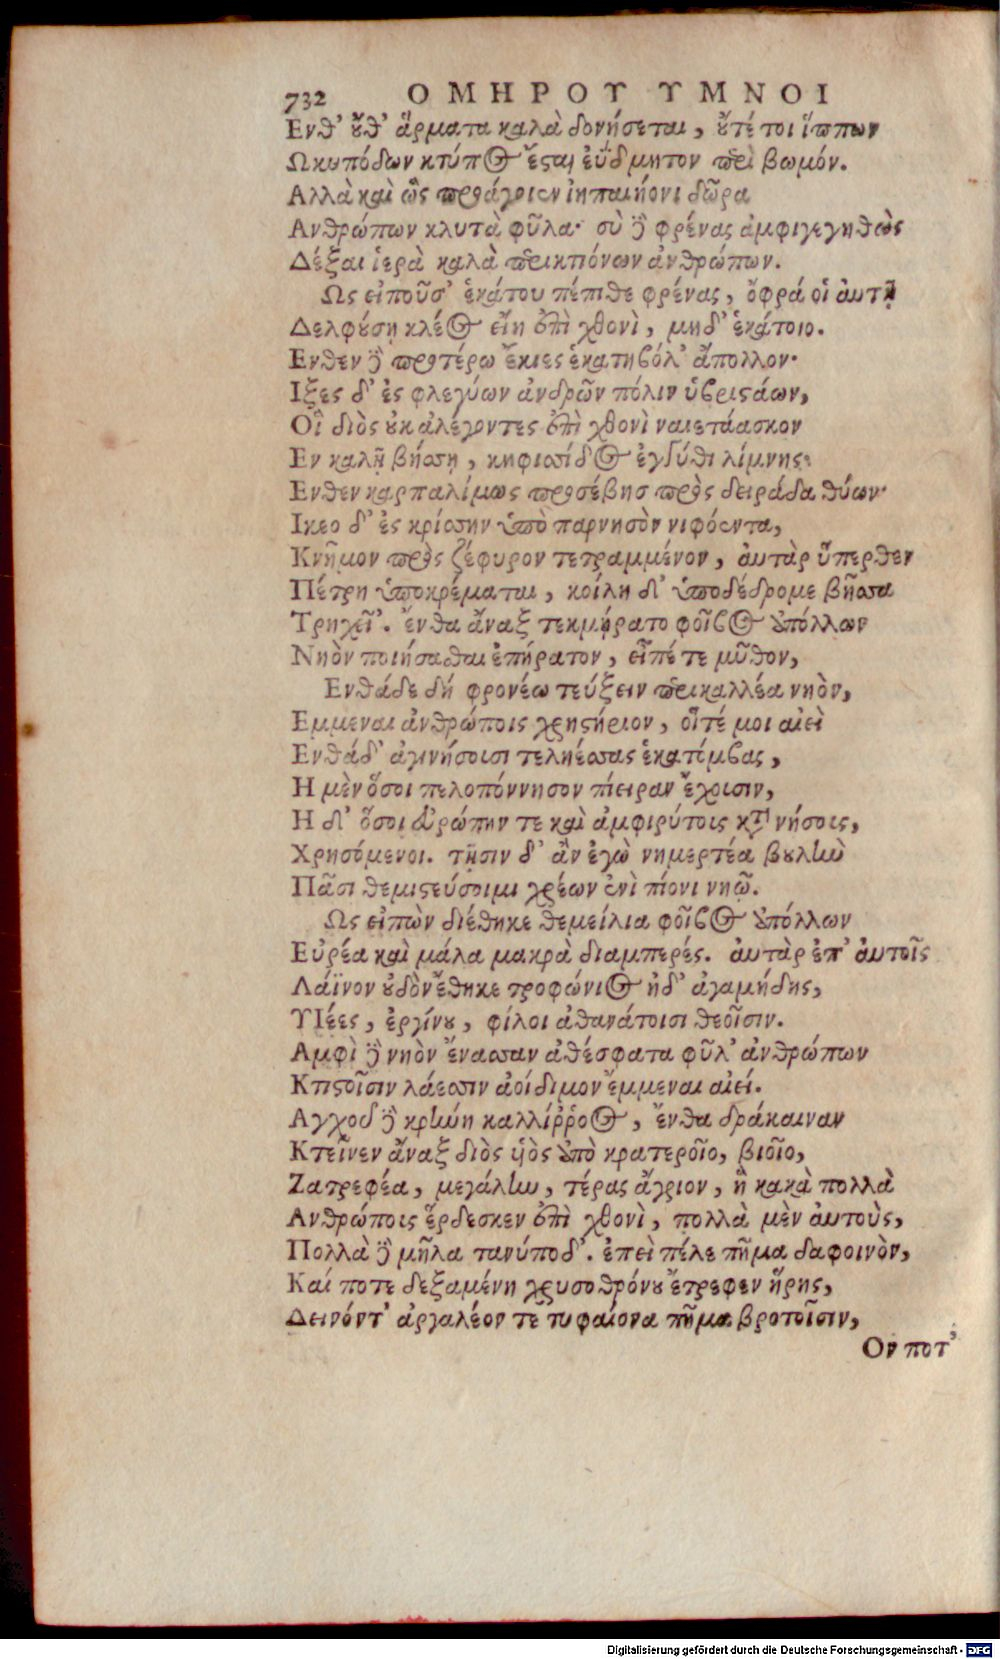 732 ΟΜΗΡΟΥ ΥΜΝΟΙ
Ενθ' οὔθ' ἅρματα καλὰ δονήσεται, οὔτέ τοι ἵππων
Ωκυπόδων κτύπος ἔσται ἐΰδμητον περὶ βωμόν.
Αλλὰ καὶ ὣς προσάγοιεν ἰηπαιήονι δῶρα
Ανθρώπων κλυτὰ φῦλα· σὺ δὲ φρένας ἀμφιγεγηθὼς
Δέξαι ἱερὰ καλὰ περικτιόνων ἀνθρώπων.
Ως εἰποῦσ' ἑκάτου πέπιθε φρένας, ὄφρά οἱ αὐτῇ
Δελφούσῃ κλέος εἴη ἐπὶ χθονὶ, μηδ' ἑκάτοιο.
Ενθεν δὲ προτέρω ἔκιες ἑκατηβόλ' ἄπολλον·
Ιξες δ' ἐς φλεγύων ἀνδρῶν πόλιν ὑβριστάων,
Οἳ διὸς οὐκ ἀλέγοντες ἐπὶ χθονὶ ναιετάασκον
Εν καλῇ βήσσῃ, κηφισσίδος ἐγγύθι λίμνης·
Ενθεν καρπαλίμως προσέβης πρὸς δειράδα θύων·
Ικεο δ' ἐς κρίσσην ὑπὸ παρνησὸν νιφόεντα,
Κνῆμον πρὸς ζέφυρον τετραμμένον, αὐτὰρ ὕπερθεν
Πέτρη ὑποκρέμαται, κοίλη δ' ὑποδέδρομε βῆσσα
Τρηχεῖ'. ἔνθα ἄναξ τεκμήρατο φοῖβος ἀπόλλων
Νηὸν ποιήσασθαι ἐπήρατον, εἶπέ τε μῦθον,
Ενθάδε δή φρονέω τεύξειν περικαλλέα νηὸν,
Εμμεναι ἀνθρώποις χρηστήριον, οἵτέ μοι αἰεὶ
Ενθάδ' ἀγινήσουσι τεληέσσας ἑκατόμβας,
Η μὲν ὅσοι πελοπόννησον πίειραν ἔχουσιν,
Η δ' ὅσοι εὐρώπην τε καὶ ἀμφιρύτοις κατὰ νήσοις,
Χρησόμενοι. τῇσιν δ' ἂν ἐγὼ νημερτέα βουλὴν
Πᾶσι θεμιστεύοιμι χρέων ἐνὶ πίονι νηῷ.
Ως εἰπὼν διέθηκε θεμείλια φοῖβος ἀπόλλων
Εὐρέα καὶ μάλα μακρὰ διαμπερές. αὐτὰρ ἐπ' αὐτοῖς
Λάϊνον οὐδὸν ἔθηκε τροφώνιος ἠδ' ἀγαμήδης,
Υἱέες, ἐργίνου, φίλοι ἀθανάτοισι θεοῖσιν.
Αμφὶ δὲ νηὸν ἔνασσαν ἀθέσφατα φῦλ' ἀνθρώπων
Κτιστοῖσιν λάεσσιν ἀοίδιμον ἔμμεναι αἰεί.
Αγχοῦ δὲ κρήνη καλλίῤῥοος, ἔνθα δράκαιναν
Κτεῖνεν ἄναξ διὸς υἱὸς ἀπὸ κρατεροῖο, βιοῖο,
Ζατρεφέα, μεγάλην, τέρας ἄγριον, ἣ κακὰ πολλὰ
Ανθρώποις ἔρδεσκεν ἐπὶ χθονὶ, πολλὰ μὲν αὐτοὺς,
Πολλὰ δὲ μῆλα τανύποδ'. ἐπεὶ πέλε πῆμα δαφοινὸν,
Καί ποτε δεξαμένη χρυσοθρόνου ἔτρεφεν ἥρης,
Δεινόντ' ἀργαλέον τε τυφαίονα πῆμα βροτοῖσιν,
Ον ποτ'
Digitalisierung gefördert durch die Deutsche Forschungsgemeinschaft - DFG